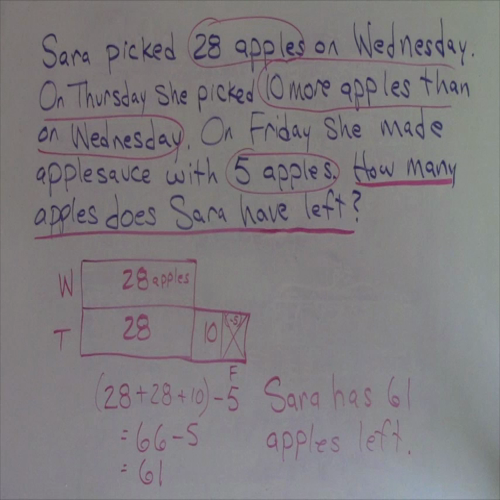 Sara picked 28 apples on Wednesday.
On Thursday she picked 10 more apples than
on Wednesday. On Friday she made
applesauce with 5 apples. How many
apples does Sara have left?
W 28 apples
T 28 10 -5
F
(28+28+10)-5 Sara has 61
=66-5 apples left.
=61